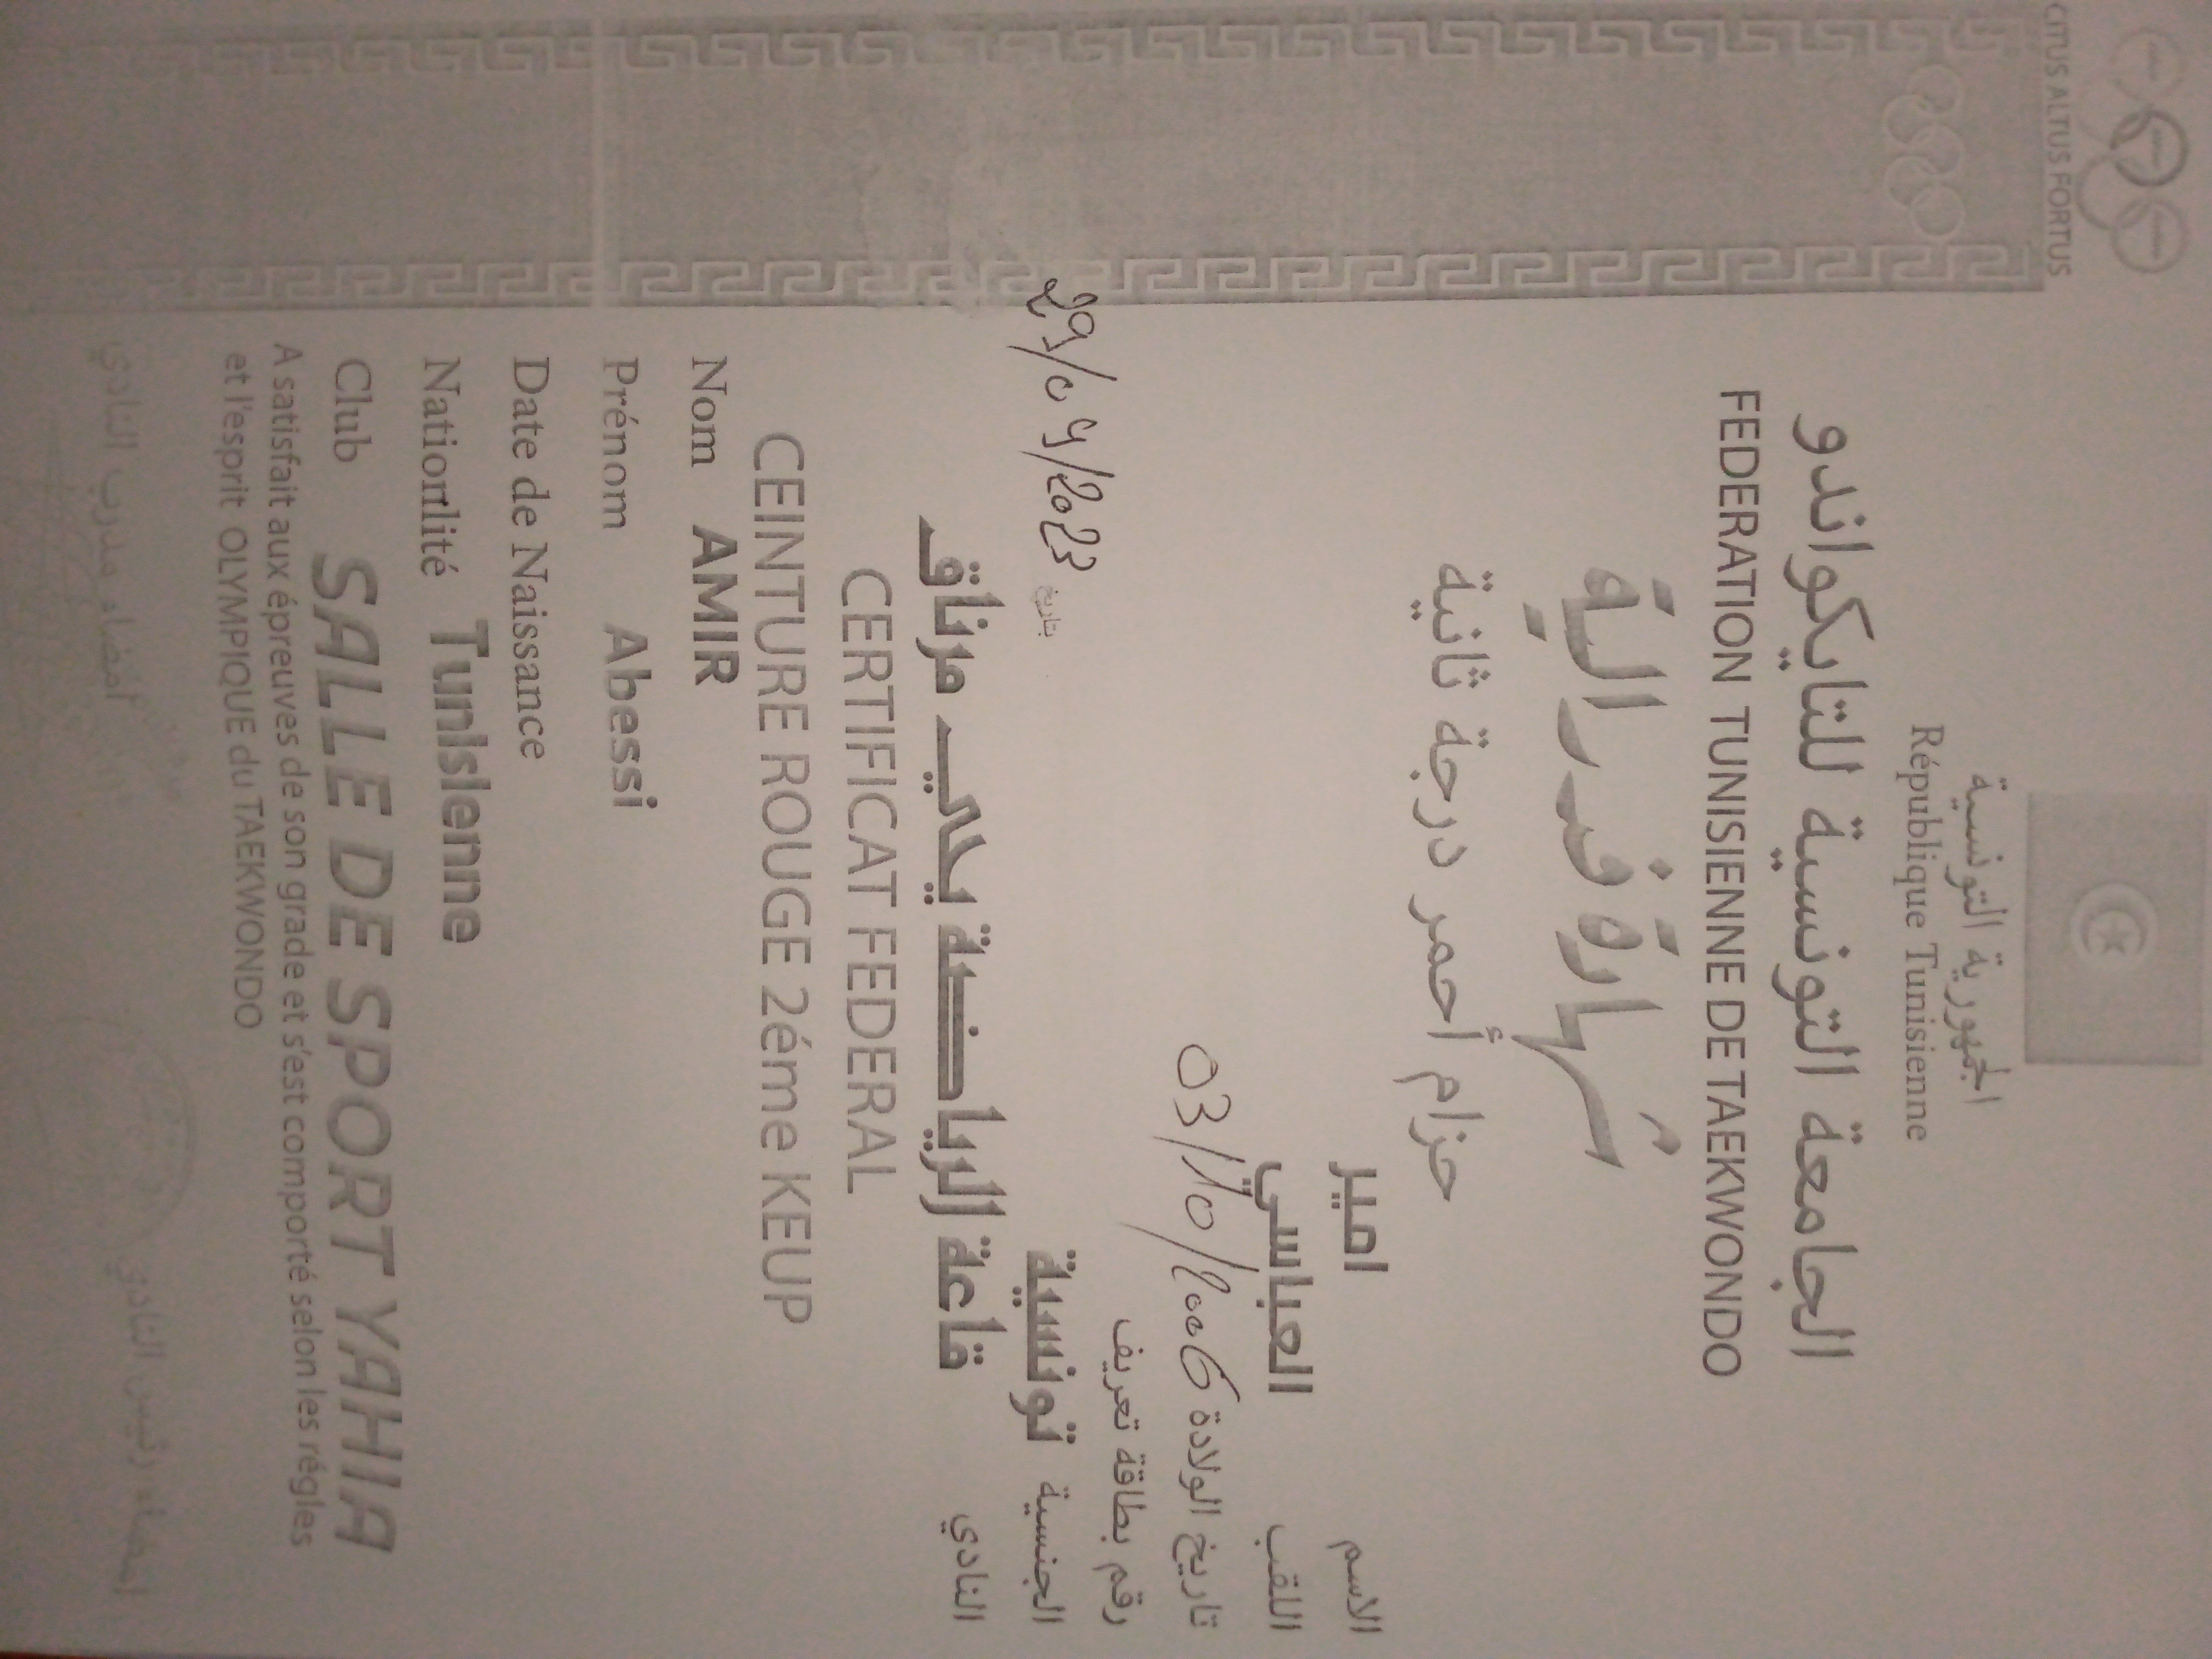 CITUS ALTUS FORTUS
الجمهورية التونسية
République Tunisienne
الجامعة التونسية للتايكواندو
FEDERATION TUNISIENNE DE TAEKWONDO
شهادة فدرالية
حزام أحمر درجة ثانية
الاسم امير
اللقب العباسي
تاريخ الولادة 03/10/2006
رقم بطاقة تعريف
الجنسية تونسية
بتاريخ 29/04/2023
النادي قاعة الرياضية يحي مرناق
CERTIFICAT FEDERAL
CEINTURE ROUGE 2éme KEUP
Nom AMIR
Prénom Abessi
Date de Naissance
Nationlité Tunisienne
Club SALLE DE SPORT YAHIA
A satisfait aux épreuves de son grade et s'est comporté selon les régles
et l'esprit OLYMPIQUE du TAEKWONDO
امضاء رئيس النادي امضاء مدرب النادي